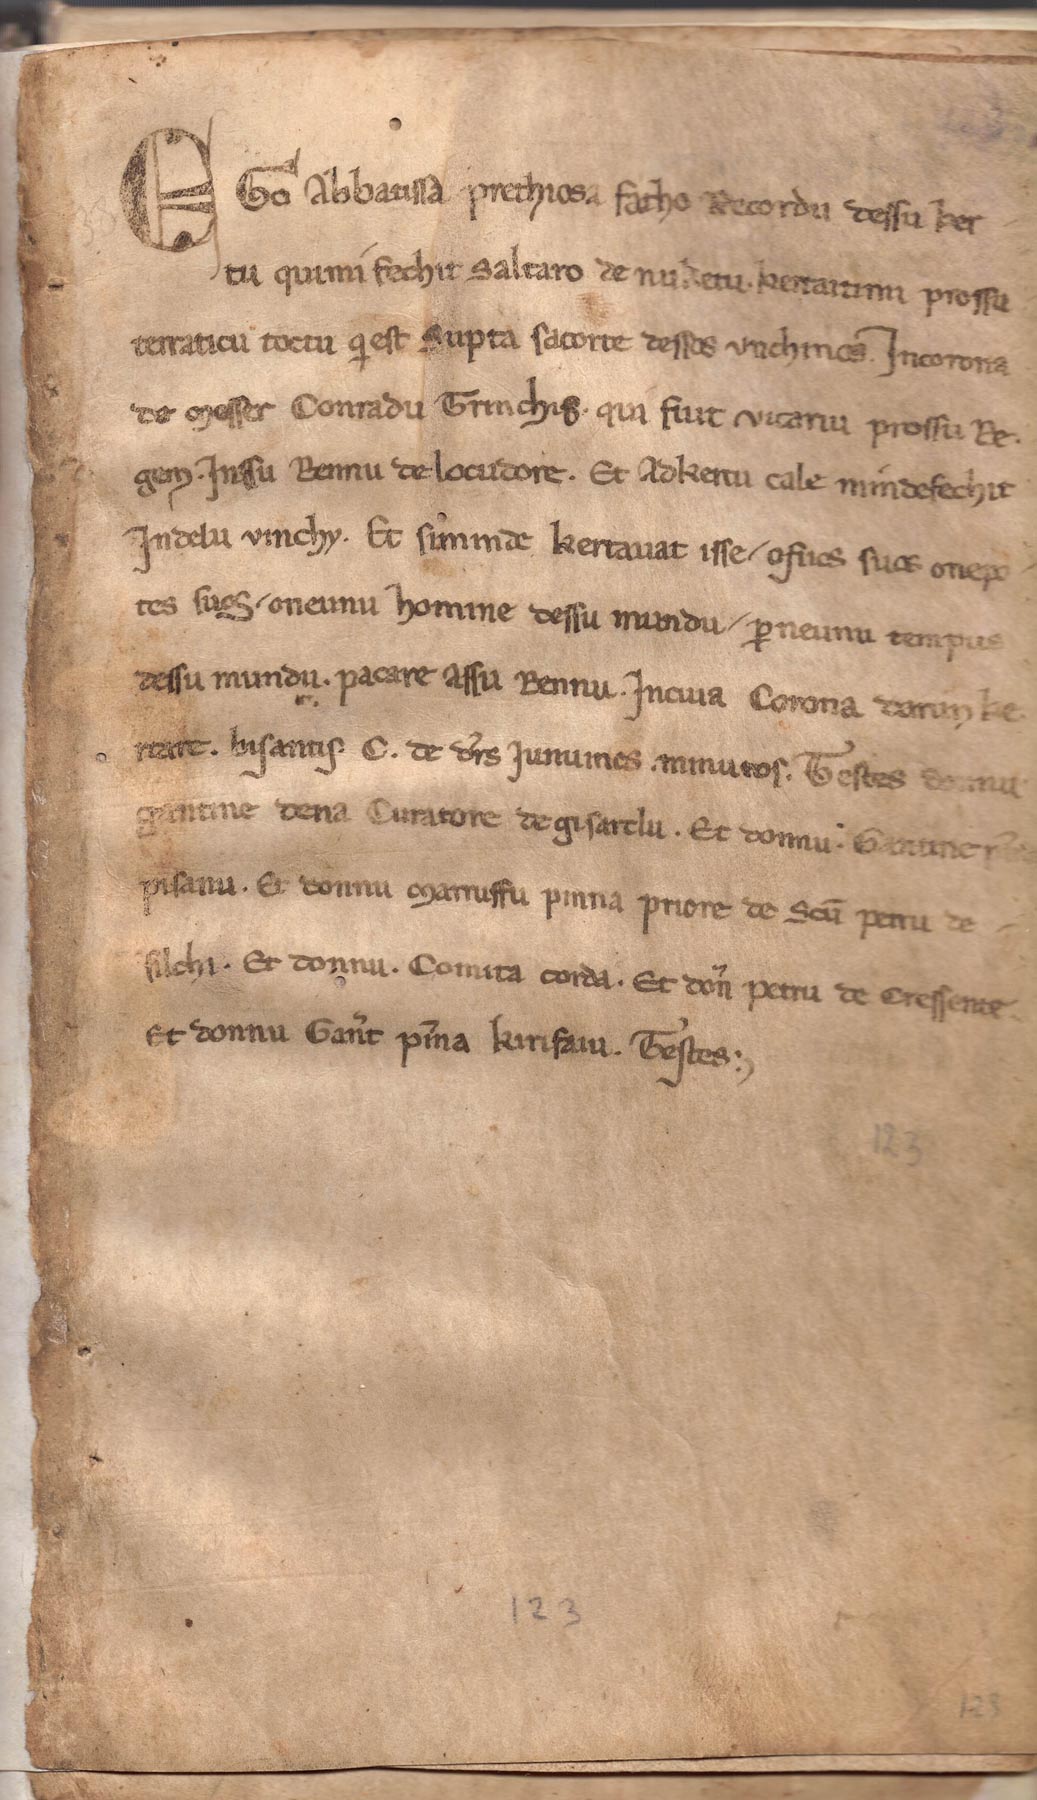 EGo Abbatissa prethiosa fatho Recordu dessu ker
tu qumi fechit Saltaro de kertaitimi prossu
terraticu toctu qi est Supta sacorte dessos vnchinos. Incorona
de Messer Conradu Trinchis. qui fiut vicariu prossu Re
gem. Inssu Rennu de locudore. Et Adkertu cale mindefechit
Indelu vinchy. Et siminde kertauat isse / ofiios suos onepo
tes suos / oneunu homine dessu mundu / p neunu tempus
dessu mundu. pacare Assu Rennu. Incuia Corona darun ke
rtare. bisantis. C. de Iunuines. minutos. Testes donnu
gantine dena Curatore de gisarclu. Et donnu. Gantine
pisanu. Et donnu Marruffu pinna priore de Scu petru de
silchi. Et donnu. Comita corda. Et don petru de Cressente.
Et donnu Gant pinna kirifaiu. Testes:
123
123
123